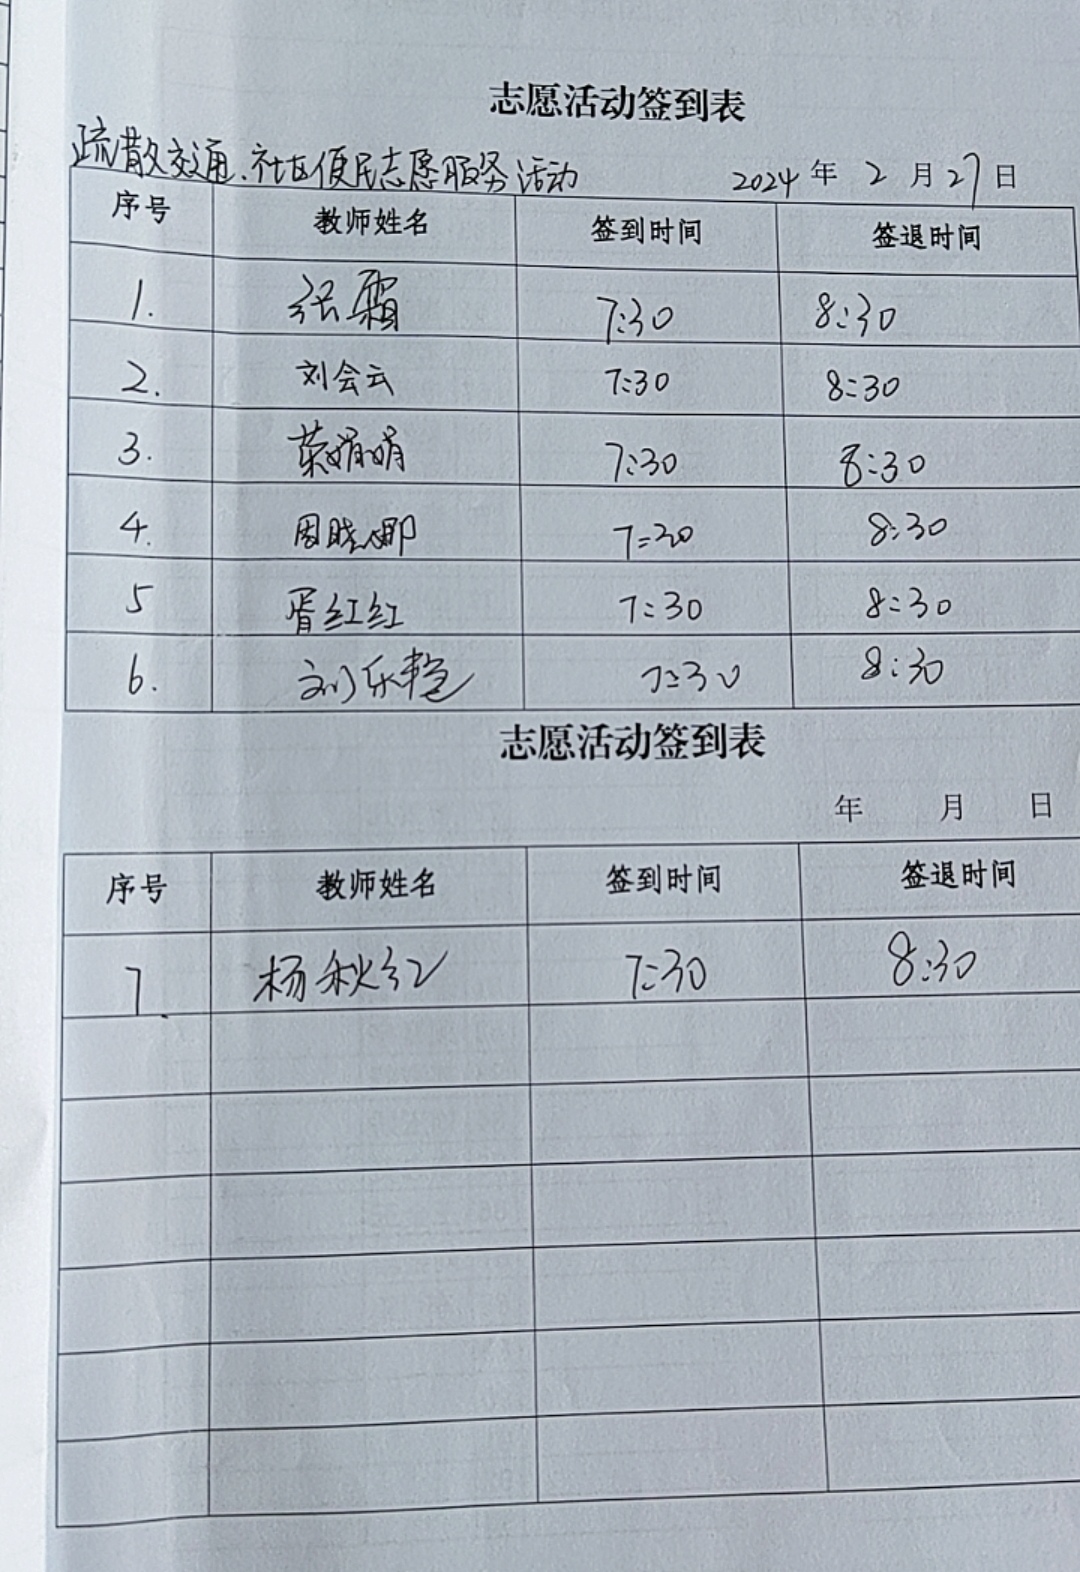 志愿活动签到表
疏散交通、社区便民志愿服务活动 2024年2月27日
序号 教师姓名 签到时间 签退时间
1. 张霜 7:30 8:30
2. 刘会云 7:30 8:30
3. 荣娟娟 7:30 8:30
4. 周晓娜 7:30 8:30
5 胥红红 7:30 8:30
6. 刘乐艳 7:30 8:30
志愿活动签到表
年 月 日
序号 教师姓名 签到时间 签退时间
7 杨秋红 7:30 8:30